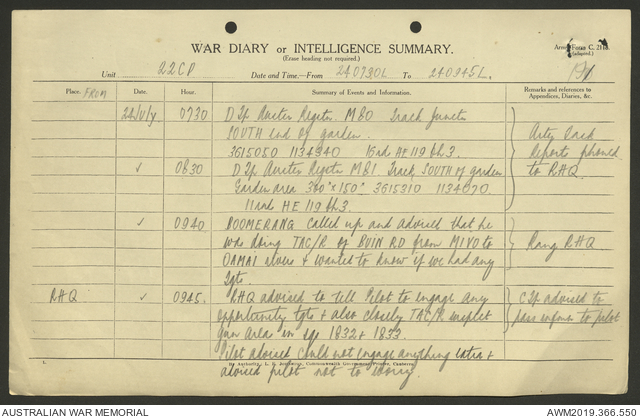 WAR DIARY or INTELLIGENCE SUMMARY.
(Erase heading not required.)
Army Form C. 2118
(adapted.)
Unit 22CP Date and Time.—From 240730L To 240945L.
Place. FROM Date. Hour. Summary of Events and Information. Remarks and references to Appendices, Diaries, &c.
0730 D Tp Auster Register M80 Track Junctn
SOUTH end of garden.
3615050 1134340 16 rd HE 119 Ch 3.
Arty Tack
Reports phoned
to RHQ.
✓ 0830 D Tp Auster Register M81 Track SOUTH of garden
Garden area 300 x 150 3615310 1134070
11 rnds HE 119 Ch 3.
✓ 0940 BOOMERANG called up and advised that he
was doing TAC/R of BUIN RD from MIVO to
OAMAI rivers & wanted to know if we had any
Tgts.
Rang RHQ
RHQ ✓ 0945. RHQ advised to tell Pilot to engage any
opportunity tgts & also closely TAC/R suspect
gun area in sqs 1832 & 1833.
C Tp advised to
pass inform to pilot
Pilot advised could not engage anything extra &
advised pilot not to worry.
By Authority: L. F. Johnston, Commonwealth Government Printer, Canberra.
AUSTRALIAN WAR MEMORIAL
AWM2019.366.550